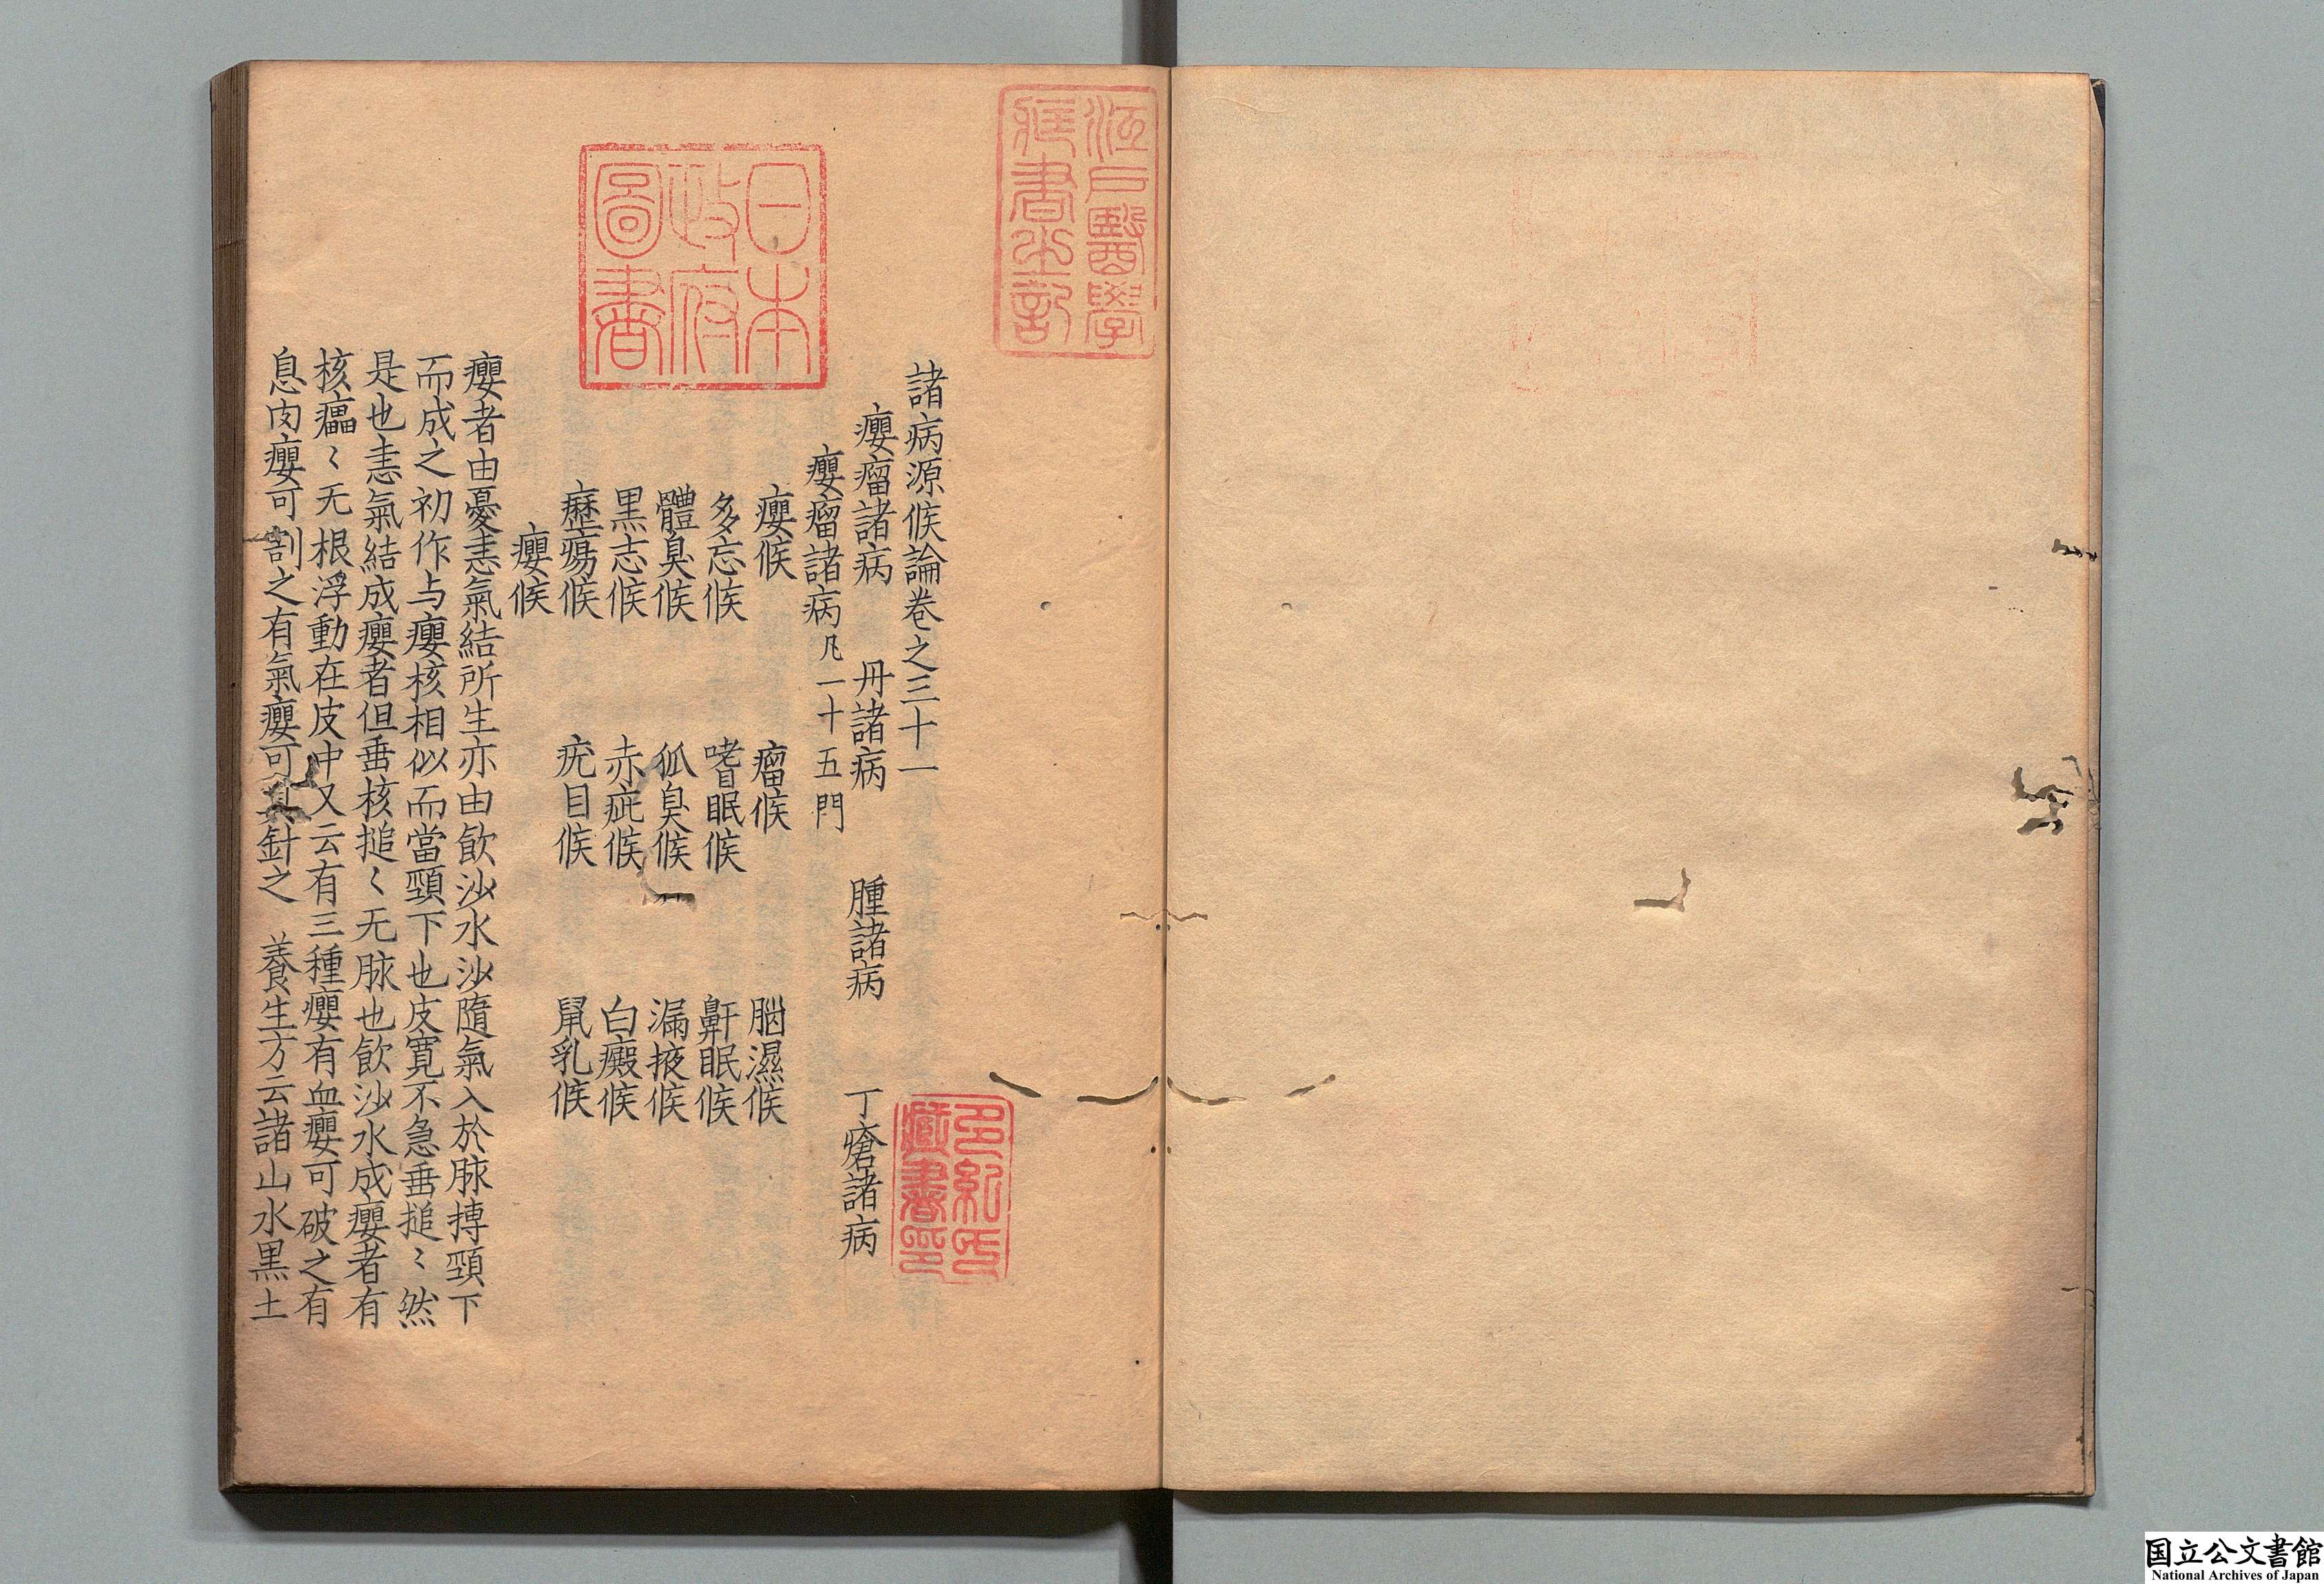 諸病源候論卷之三十一
癭瘤諸病　丹諸病　腫諸病　丁瘡諸病
癭瘤諸病凡一十五門
癭候　瘤候　腦濕候
多忘候　嗜眠候　鼾眠候
體臭候　狐臭候　漏掖候
黒志候　赤疵候　白癜候
歷瘍候　疣目候　鼠乳候
癭候
癭者由憂恚氣結所生亦由飲沙水沙隨氣入於脉搏頸下
而成之初作与癭核相似而當頸下也皮寛不急垂搥〻然
是也恚氣結成癭者但垂核搥〻无脉也飲沙水成癭者有
核㿔〻无根浮動在皮中又云有三種癭有血癭可破之有
息肉癭可割之有氣癭可具針之　養生方云諸山水黒土
江戸醫學
藏書之記
日本
政府
圖書
多紀氏
藏書印
国立公文書館
National Archives of Japan